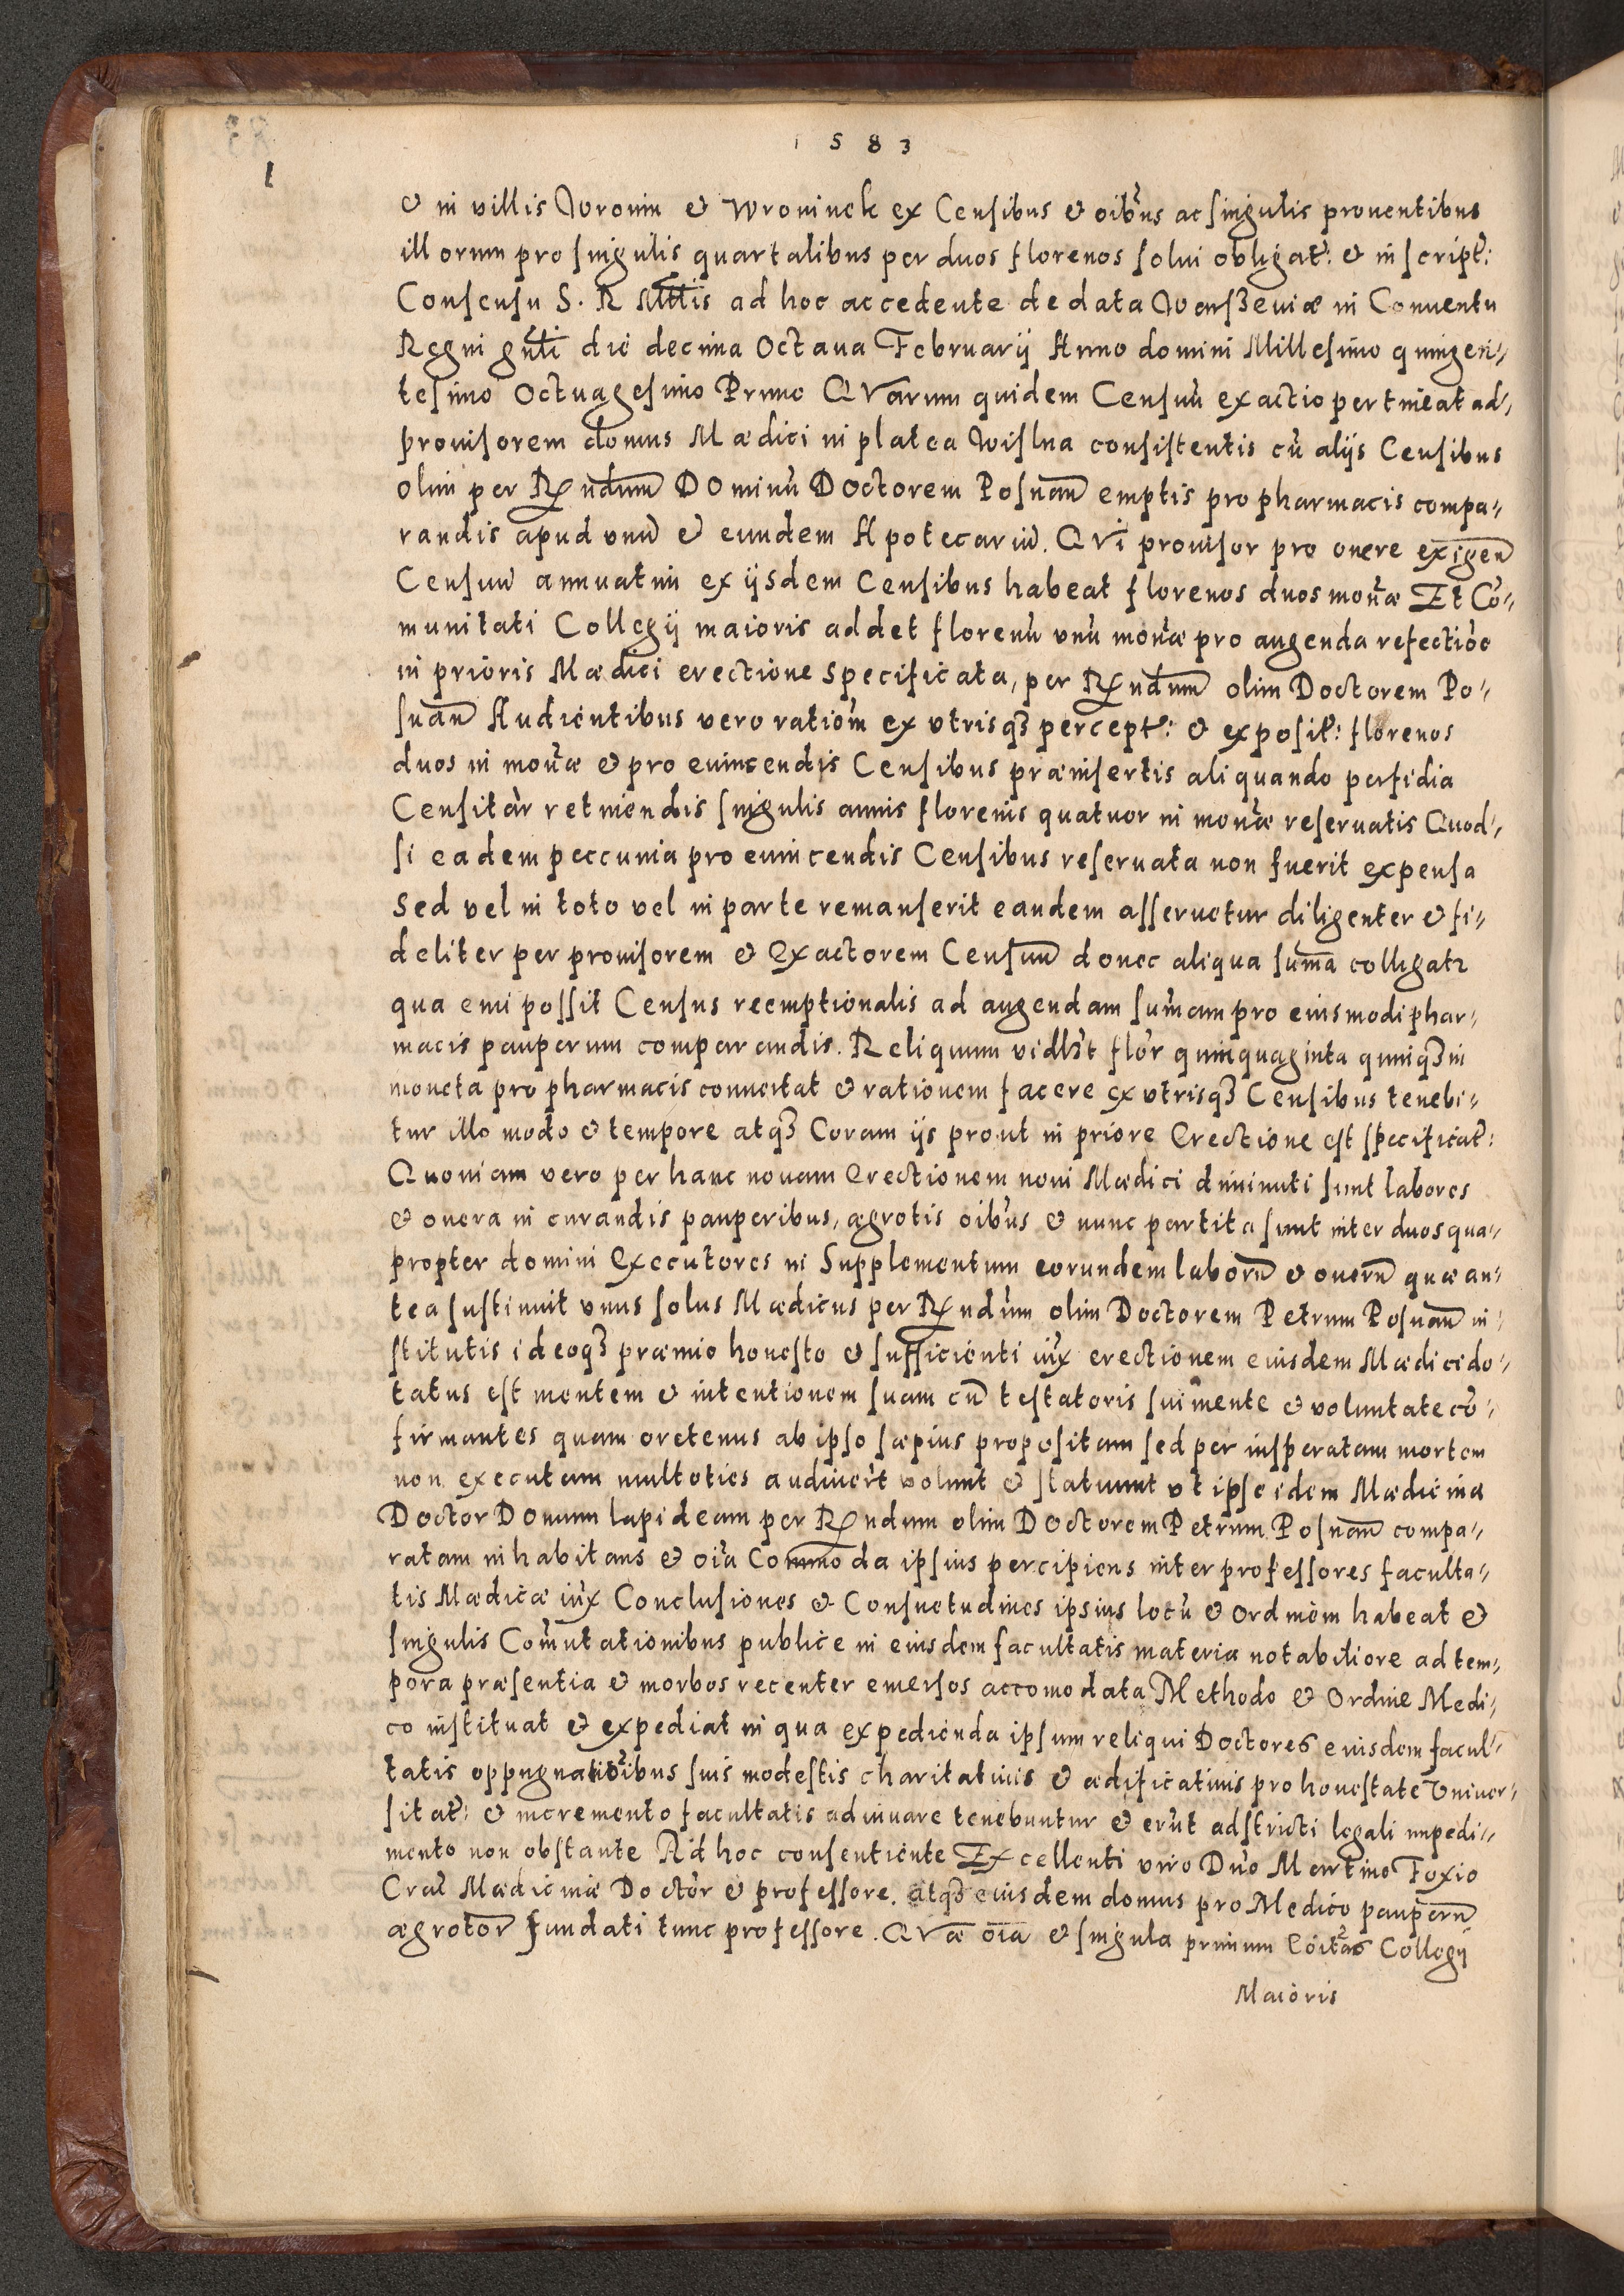 1583
1
& in villis Woronin & Wroninek ex Censibus & oibus ac singulis prouentibus
illorum pro singulis quartalibus per duos florenos solui obligat: & inscript:
Consensu S. R Mttis ad hoc accedente de data Warszeuiæ in Conuentu
Regni gnti die decima Octaua Februarij Anno domini Millesimo quingen„
tesimo Octuagesimo Primo QVarum quidem Censuū exactio pertineat ad„
prouisorem domus Mædici in platea Wislna consistentis cū alijs Censibus
olim per Rndum DOminū DOctorem Posnan emptis pro pharmacis compa„
randis apud vnū & eundem Apotecariū. QVi prouisor pro onere exigen
Censuū annuatim ex ijsdem Censibus habeat florenos duos monæ Et Cō„
munitati Collegij maioris addet florenū vnū monæ pro augenda refectioe
in prioris Mædici erectione specificata, per Rndum olim Doctorem Po„
snan Audientibus vero rationi ex vtrisqз percept: & exposit: florenos
duos in monæ & pro euincendis Censibus præinsertis aliquando perfidia
Censitar retinendis singulis annis florenis quatuor in monæ reseruatis Quod„
si eadem peccunia pro euincendis Censibus reseruata non fuerit expensa
Sed vel in toto vel in parte remanserit eandem asseruetur diligenter & fi„
deliter per prouisorem & Exactorem Censuū donec aliqua suma colligatr
qua emi possit Census reemptionalis ad augendam sumam pro eiusmodi phar„
macis pauperum comparandis. Reliquum vidlзt flor quinquaginta quinqз in
moneta pro pharmacis conuertat & rationem facere ex vtrisqз Censibus tenebi„
tur illo modo & tempore atqз Coram ijs prout in priore Erectione est specificat:
Quoniam vero per hanc nouam Erectionem noui Mædici diminuti sunt labores
& onera in curandis pauperibus, ægrotis oibus & nunc partita sunt inter duos qua„
propter domini Executores in Supplementum eorundem laborū & onerū quæ an„
tea sustinuit vnus solus Mædicus per Rndum olim Doctorem Petrum Posnan in„
stitutis ideoqз præmio honesto & sufficienti iux erectionem eiusdem Mædici do„
tatus est mentem & intentionem suam cū testatoris sui mente & voluntate cō„
firmantes quam oretenus ab ipso sæpius propositam sed per insperatam mortem
non executam multoties audiuerūt volunt & statuunt vt ipse idem Mædicina
Doctor Domum lapideam per Rndum olim DOctorem Petrum Posnan compa„
ratam inhabitans & oia Commoda ipsius percipiens inter professores faculta„
tis Mædicæ iux Conclusiones & Consuetudines ipsius locū & Ordinem habeat &
singulis Comutationibus publice in eiusdem facultatis materia notabiliore ad tem„
pora præsentia & morbos recenter emersos accomodata Methodo & Ordine Medi„
co instituat & expediat in qua expedienda ipsum reliqui Doctores eiusdem facul„
tatis oppugnatioibus suis modestis charitatiuis & ædificatiuis pro honestate Vniuer„
sitat: & incremento facultatis adiuuare tenebuntur & erūt adstricti legali impedi„
mento non obstante Ad hoc consentiente Excellenti viro Dno Martino Foxio
Crac Mædicinæ Doctor & professore. atqз eiusdem domus pro Medico pauperū
ægrotor fundati tunc professore. QVæ oia & singula primum Coitas Collegij
Maioris